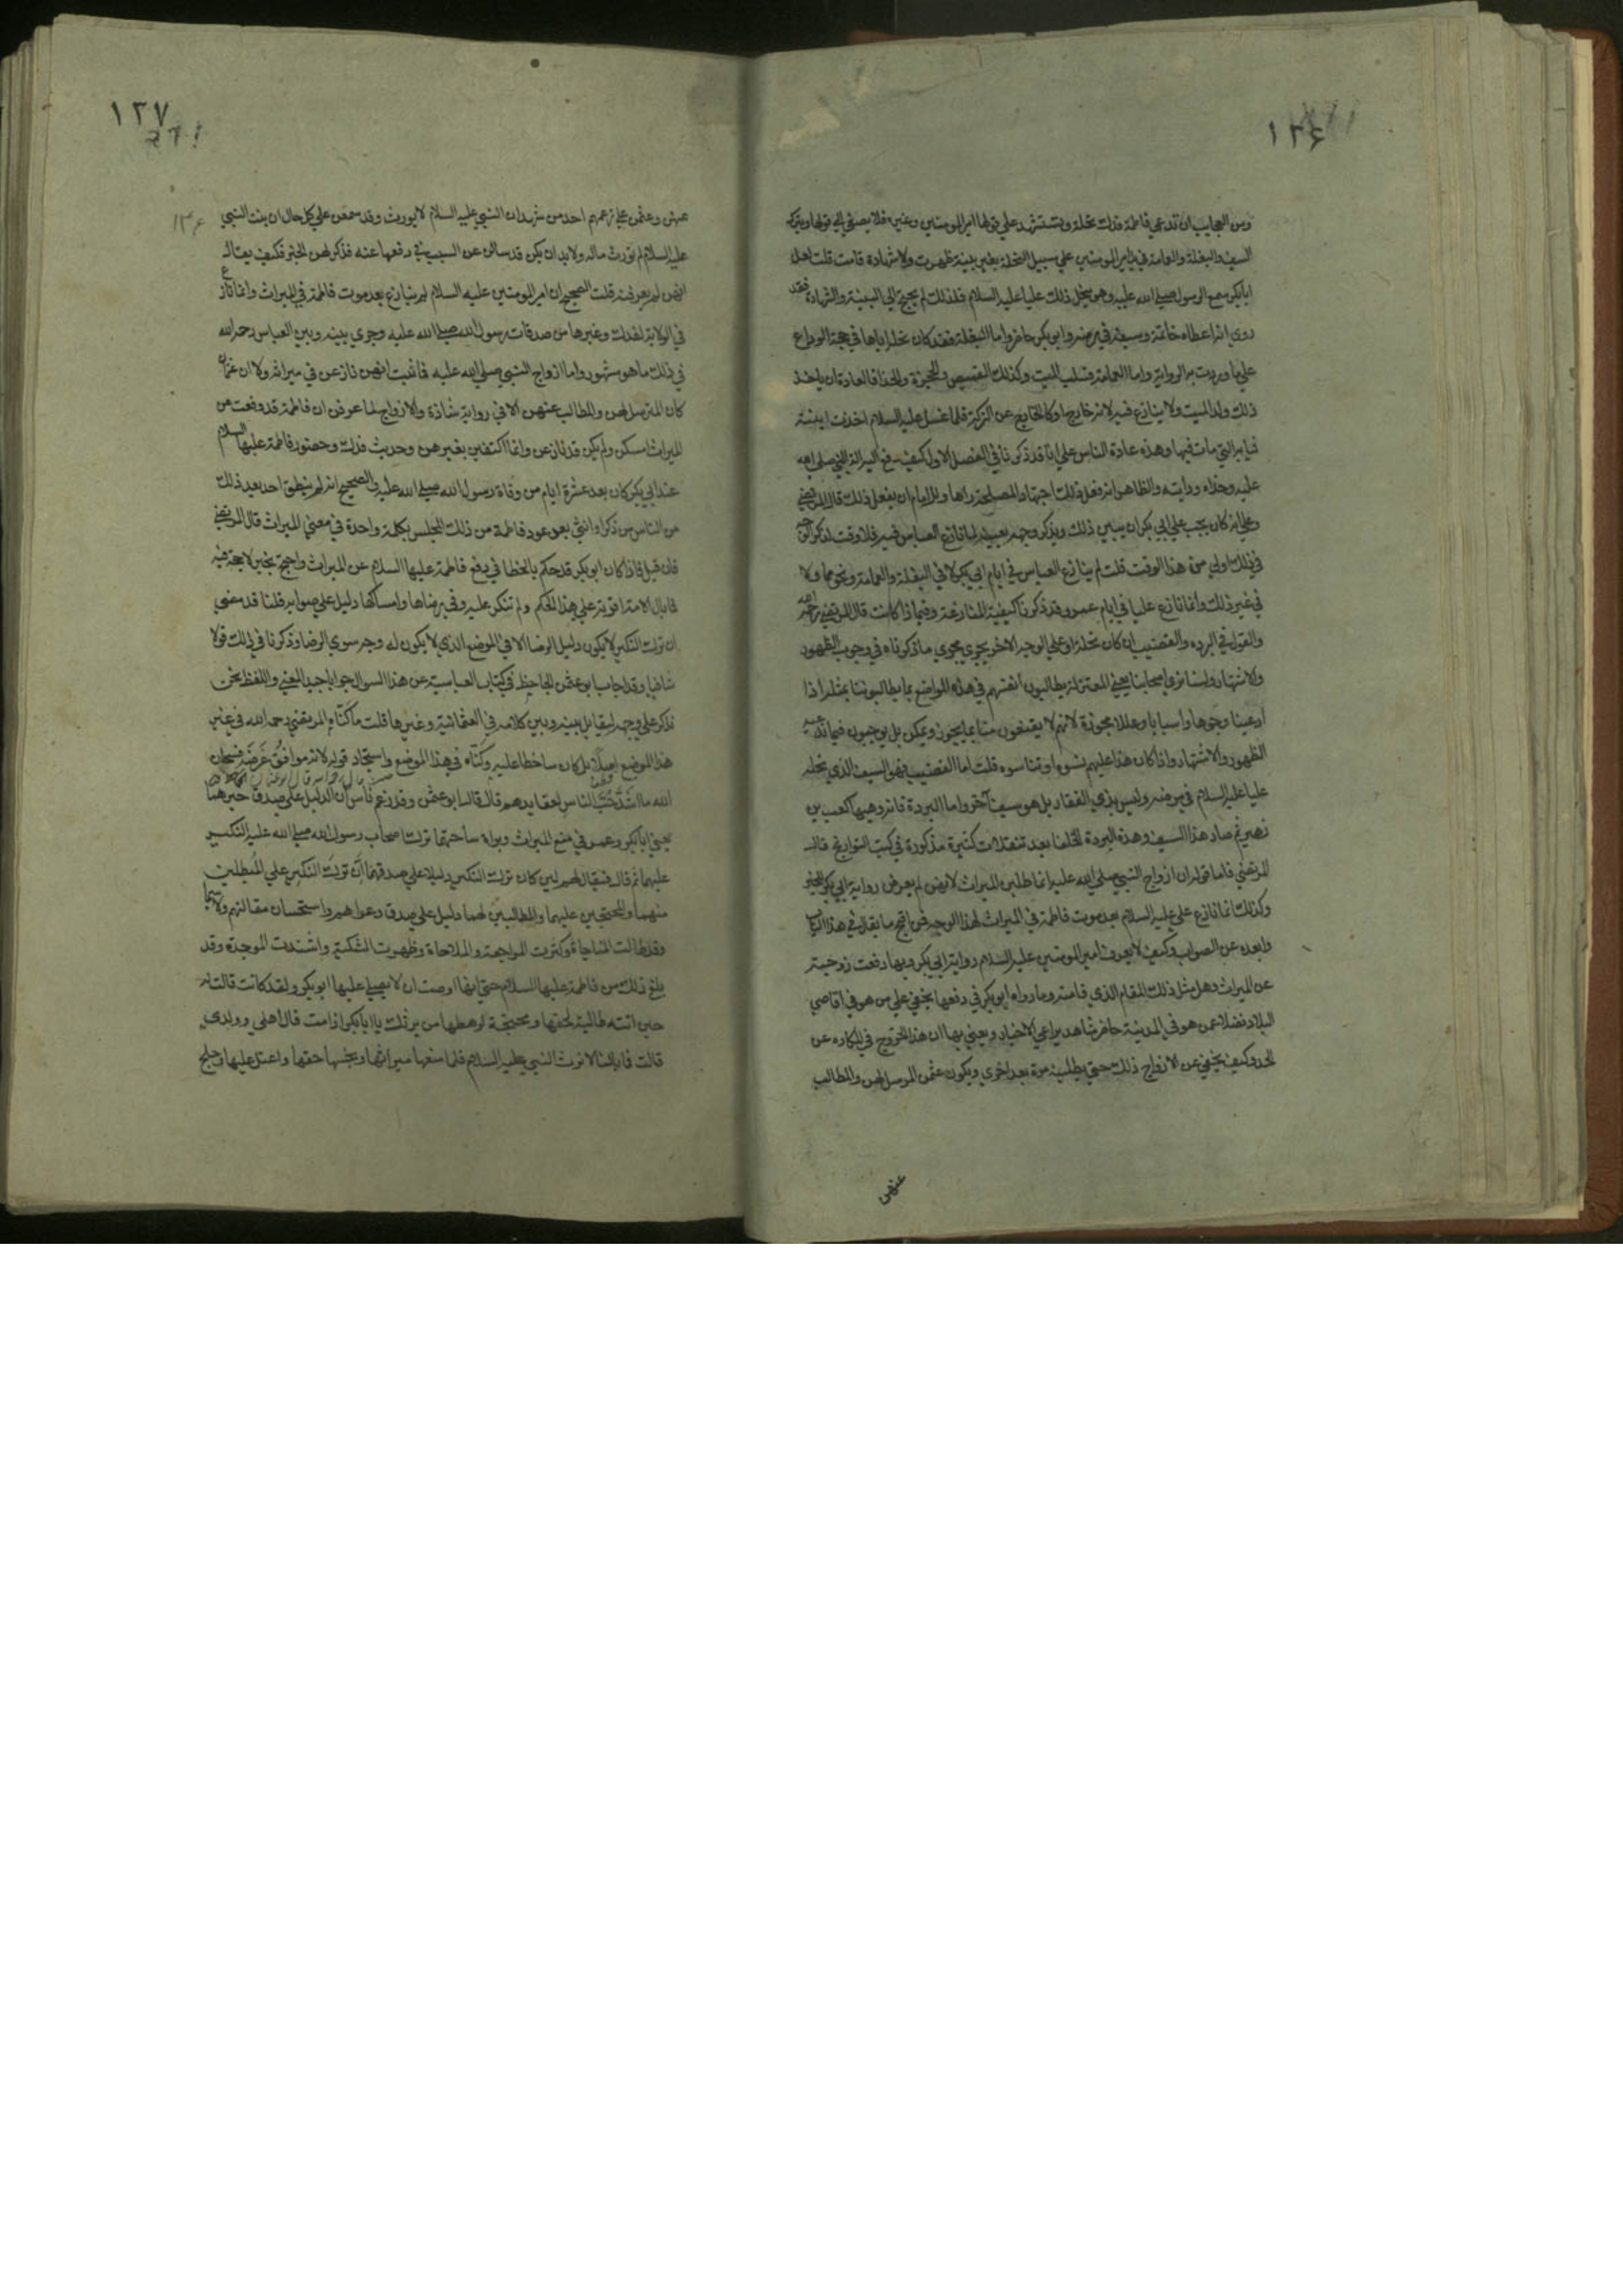 ١٢۶
ومن العجايب ان تدعي فاطمة فدك نحلة وتستشهد علي قولها امير المومنين وغيره فلا يصغي الي قولها ويترك
السيف والبغلة والعمامة في يد امير المومنين علي سبيل النحلة بغير بينة ظهرت ولا شهادة قامت قلت لعل
ابابكر سمع الرسول صلي الله عليه وهو ينحل ذلك عليا عليه السلام فلذلك لم يحتج الي البينة والشهادة فقد
روي انه اعطاه خاتمه وسيفه في مرضه وابو بكر حاضر واما البغلة فقد كان نحله اياها في حجة الوداع
علي ما وردت به الرواية واما العمامة فسلب الميت وكذلك القميص والحجزة والحذا فالعادة ان ياخذ
ذلك ولد الميت ولا ينازع فيه لانه خارج او كالخارج عن التركة فلما غسل عليه السلام اخذت ابنته
ثيابه التي مات فيها وهذه عادة الناس علي انا قد ذكرنا في الفصل الاول كيف دفع اليه الة النبي صلي الله
عليه وحذاه ودابته والظاهر انه فعل ذلك اجتهادا لمصلحة راها وللامام ان يفعل ذلك قال المرتضي
وعلي انه كان يجب علي ابي بكر ان يبين ذلك ويذكر وجهه بعينه لما نازع العباس فيه فلا وقت لذكر الوجه
في ذلك اولي من هذا الوقت قلت لم ينازع العباس في ايام ابي بكر لا في البغلة والعمامة ونحوهما ولا
في غير ذلك وانما نازع عليا في ايام عمر وقد ذكرنا كيفية المنازعة وفيما ذا كانت قال المرتضي رحمه الله
والقول في البرده والقضيب ان كان نحلة او علي الوجه الاخر يجري مجري ما ذكرناه في وجوب الظهور
والاشتهار ولسنا نري اصحابنا يعني المعتزلة يطالبون انفسهم في هذه المواضع بما يطالبوننا بمثله اذا
ادعينا وجوها واسبابا وعللا مجوزة لانهم لا يقنعون منا بما يجوز ويمكن بل يوجبون فيما ندعيه
الظهور والاشتهار واذا كان هذا عليهم نسوه او تناسوه قلت اما القضيب فهو السيف الذي نحله
عليا عليه السلام في مرضه وليس بذي الفقار بل هو سيف آخر واما البردة فانه وهبها كعب بن
زهير ثم صار هذا السيف وهذه البردة للخلفا بعد تنقلات كثيرة مذكورة في كتب التواريخ قال
المرتضي فاما قوله ان ازواج النبي صلي الله عليه انما طلبن الميراث لانهن لم يعرفن رواية ابي بكر للخبر
وكذلك انما نازع علي عليه السلام بعد موت فاطمة في الميراث لهذا الوجه فمن اقبح ما يقال في هذا الباب
وابعده عن الصواب وكيف لا يعرف امير المومنين عليه السلام رواية ابي بكر وبها دفعت زوجته
عن الميراث وهل مثل ذلك المقام الذي قامته وما رواه ابو بكر في دفعها يخفي علي من هو في اقاصي
البلاد فضلا عمن هو في المدينة حاضر شاهد يراعي الاخبار ويعني بها ان هذا الخروج في المكابرة عن
الحد وكيف يخفي عن الازواج ذلك حتي يطلبنه مرة بعد اخري ويكون عثمن الرسول لهن والمطالب
عنهن
١٢٧
عنهن وعثمن علي زعمهم احد من شهد ان النبي عليه السلام لا يورث وقد سمعن علي كل حال ان بنت النبي
عليه السلام لم تورث ماله ولا بد ان يكن قد سالن عن السبب في دفعها عنه فذكر لهن الخبر فكيف يقال
انهن لم يعرفنه قلت الصحيح ان امير المومنين عليه السلام لم ينازع بعد موت فاطمة في الميراث وانما نازع
في الولاية لفدك وغيرها من صدقات رسول الله صلي الله عليه وجري بينه وبين العباس رحمه الله
في ذلك ما هو مشهور واما ازواج النبي صلي الله عليه فما ثبت انهن نازعن في ميراثه ولا ان عثمان
كان المترسل لهن والمطالب عنهن الا في رواية شاذة والازواج لما عرفن ان فاطمة قد دفعت عن
الميراث امسكن ولم يكن قد نازعن وانما اكتفين بغيرهن وحديث فدك وحضور فاطمة عليها السلام
عند ابي بكر كان بعد عشرة ايام من وفاة رسول الله صلي الله عليه والصحيح انه لم ينطق احد بعد ذلك
من الناس من ذكر او انثي بعد عود فاطمة من ذلك المجلس بكلمة واحدة في معني الميراث قال المرتضي
فان قيل فاذا كان ابو بكر قد حكم بالخطا في دفع فاطمة عليها السلام عن الميراث واحتج بخبر لا حجة فيه
فما بال الامة اقرته علي هذا الحكم ولم تنكر عليه وفي رضاها وامساكها دليل علي صوابه قلنا قد مضي
ان ترك النكير لا يكون دليل الرضا الا في الموضع الذي لا يكون له وجه سوي الرضا وذكرنا في ذلك قولا
شافيا وقد اجاب ابو عثمن الجاحظ في كتاب العباسية عن هذا السوال جوابا جيد المعني واللفظ نحن
نذكره علي وجهه ليقابل بينه وبين كلامه في العثمانية وغيرها قلت ما كناه المرتضي رحمه الله في غير
هذا الموضع اصلا بل كان ساخطا عليه وكناه في هذا الموضع واستجاد قوله لانه موافق غرضه فسبحان
الله ما اشد حب الناس لعقايدهم قال قال ابو عثمن وقد زعم ناس ان الدليل علي صدق خبرهما
يعني ابابكر وعمر في منع الميراث وبراة ساحتهما ترك اصحاب رسول الله صلي الله عليه النكير
عليهما ثم قال فيقال لهم لين كان ترك النكير دليلا علي صدقهما ان ترك النكير علي المتظلمين
منهما والمحتجين عليهما والمطالبين لهما دليل علي صدق دعواهم واستحسان مقالتهم ولا سيما
وقد طالت المناجاة وكثرت المراجعة والملاحاة وظهرت الشكية واشتدت الموجدة وقد
بلغ ذلك من فاطمة عليها السلام حتي انها اوصت ان لا يصلي عليها ابو بكر ولقد كانت قالت له
حين اتته طالبة لحقها ومحتجة لرهطها من يرثك يا ابابكر اذا مت قال اهلي وولدي
قالت فما بالنا لا نرث النبي عليه السلام فلما منعها ميراثها وبخسها حقها واعتل عليها وجلح